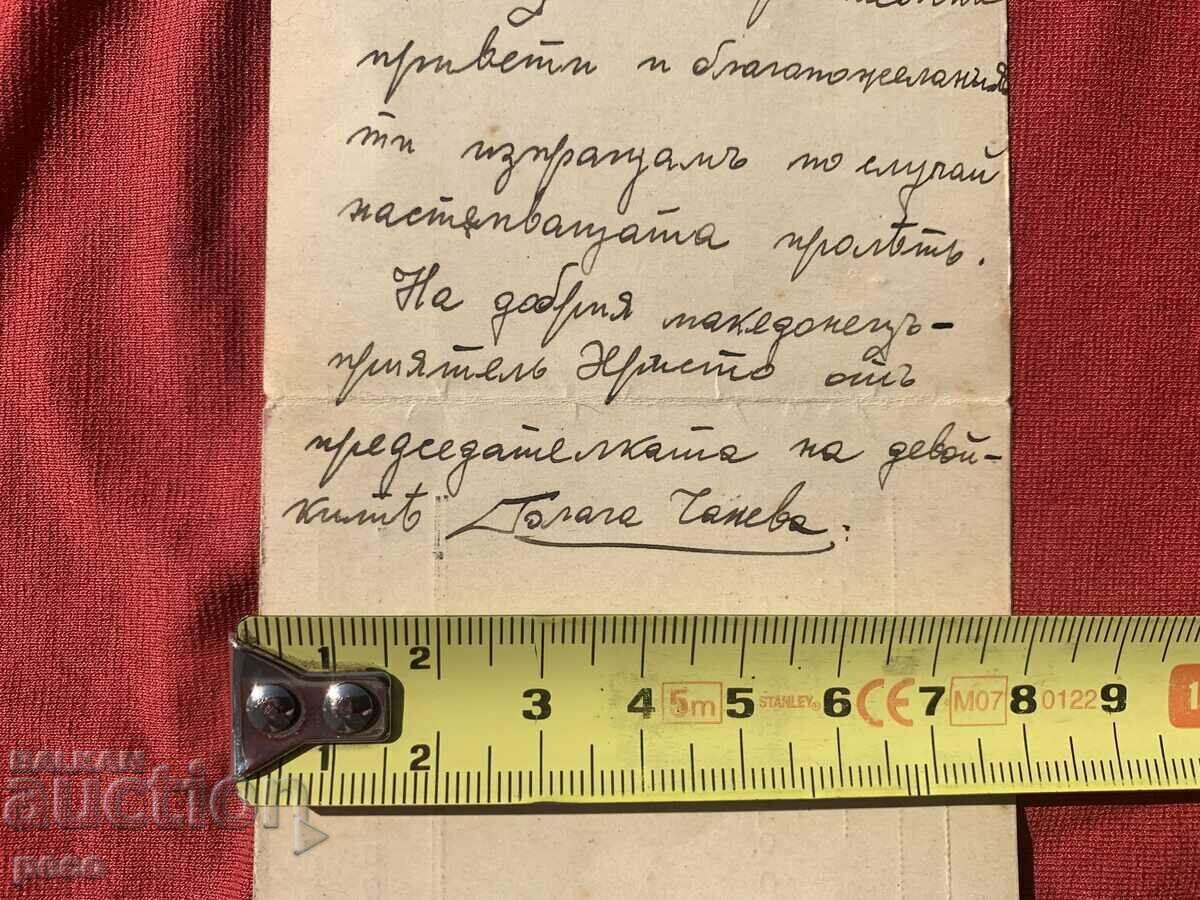 привети и благопожелания
ти изпращамъ по случай
настѫпващата пролѣть.
На добрия македонецъ-
приятель Христо отъ
председателката на девой-
китѣ Чанева.
1 2 3 4 5m 5 STANLEY 6 CE 7 M07 8 0122 9 1
1 2
BALKAN
auction
poco